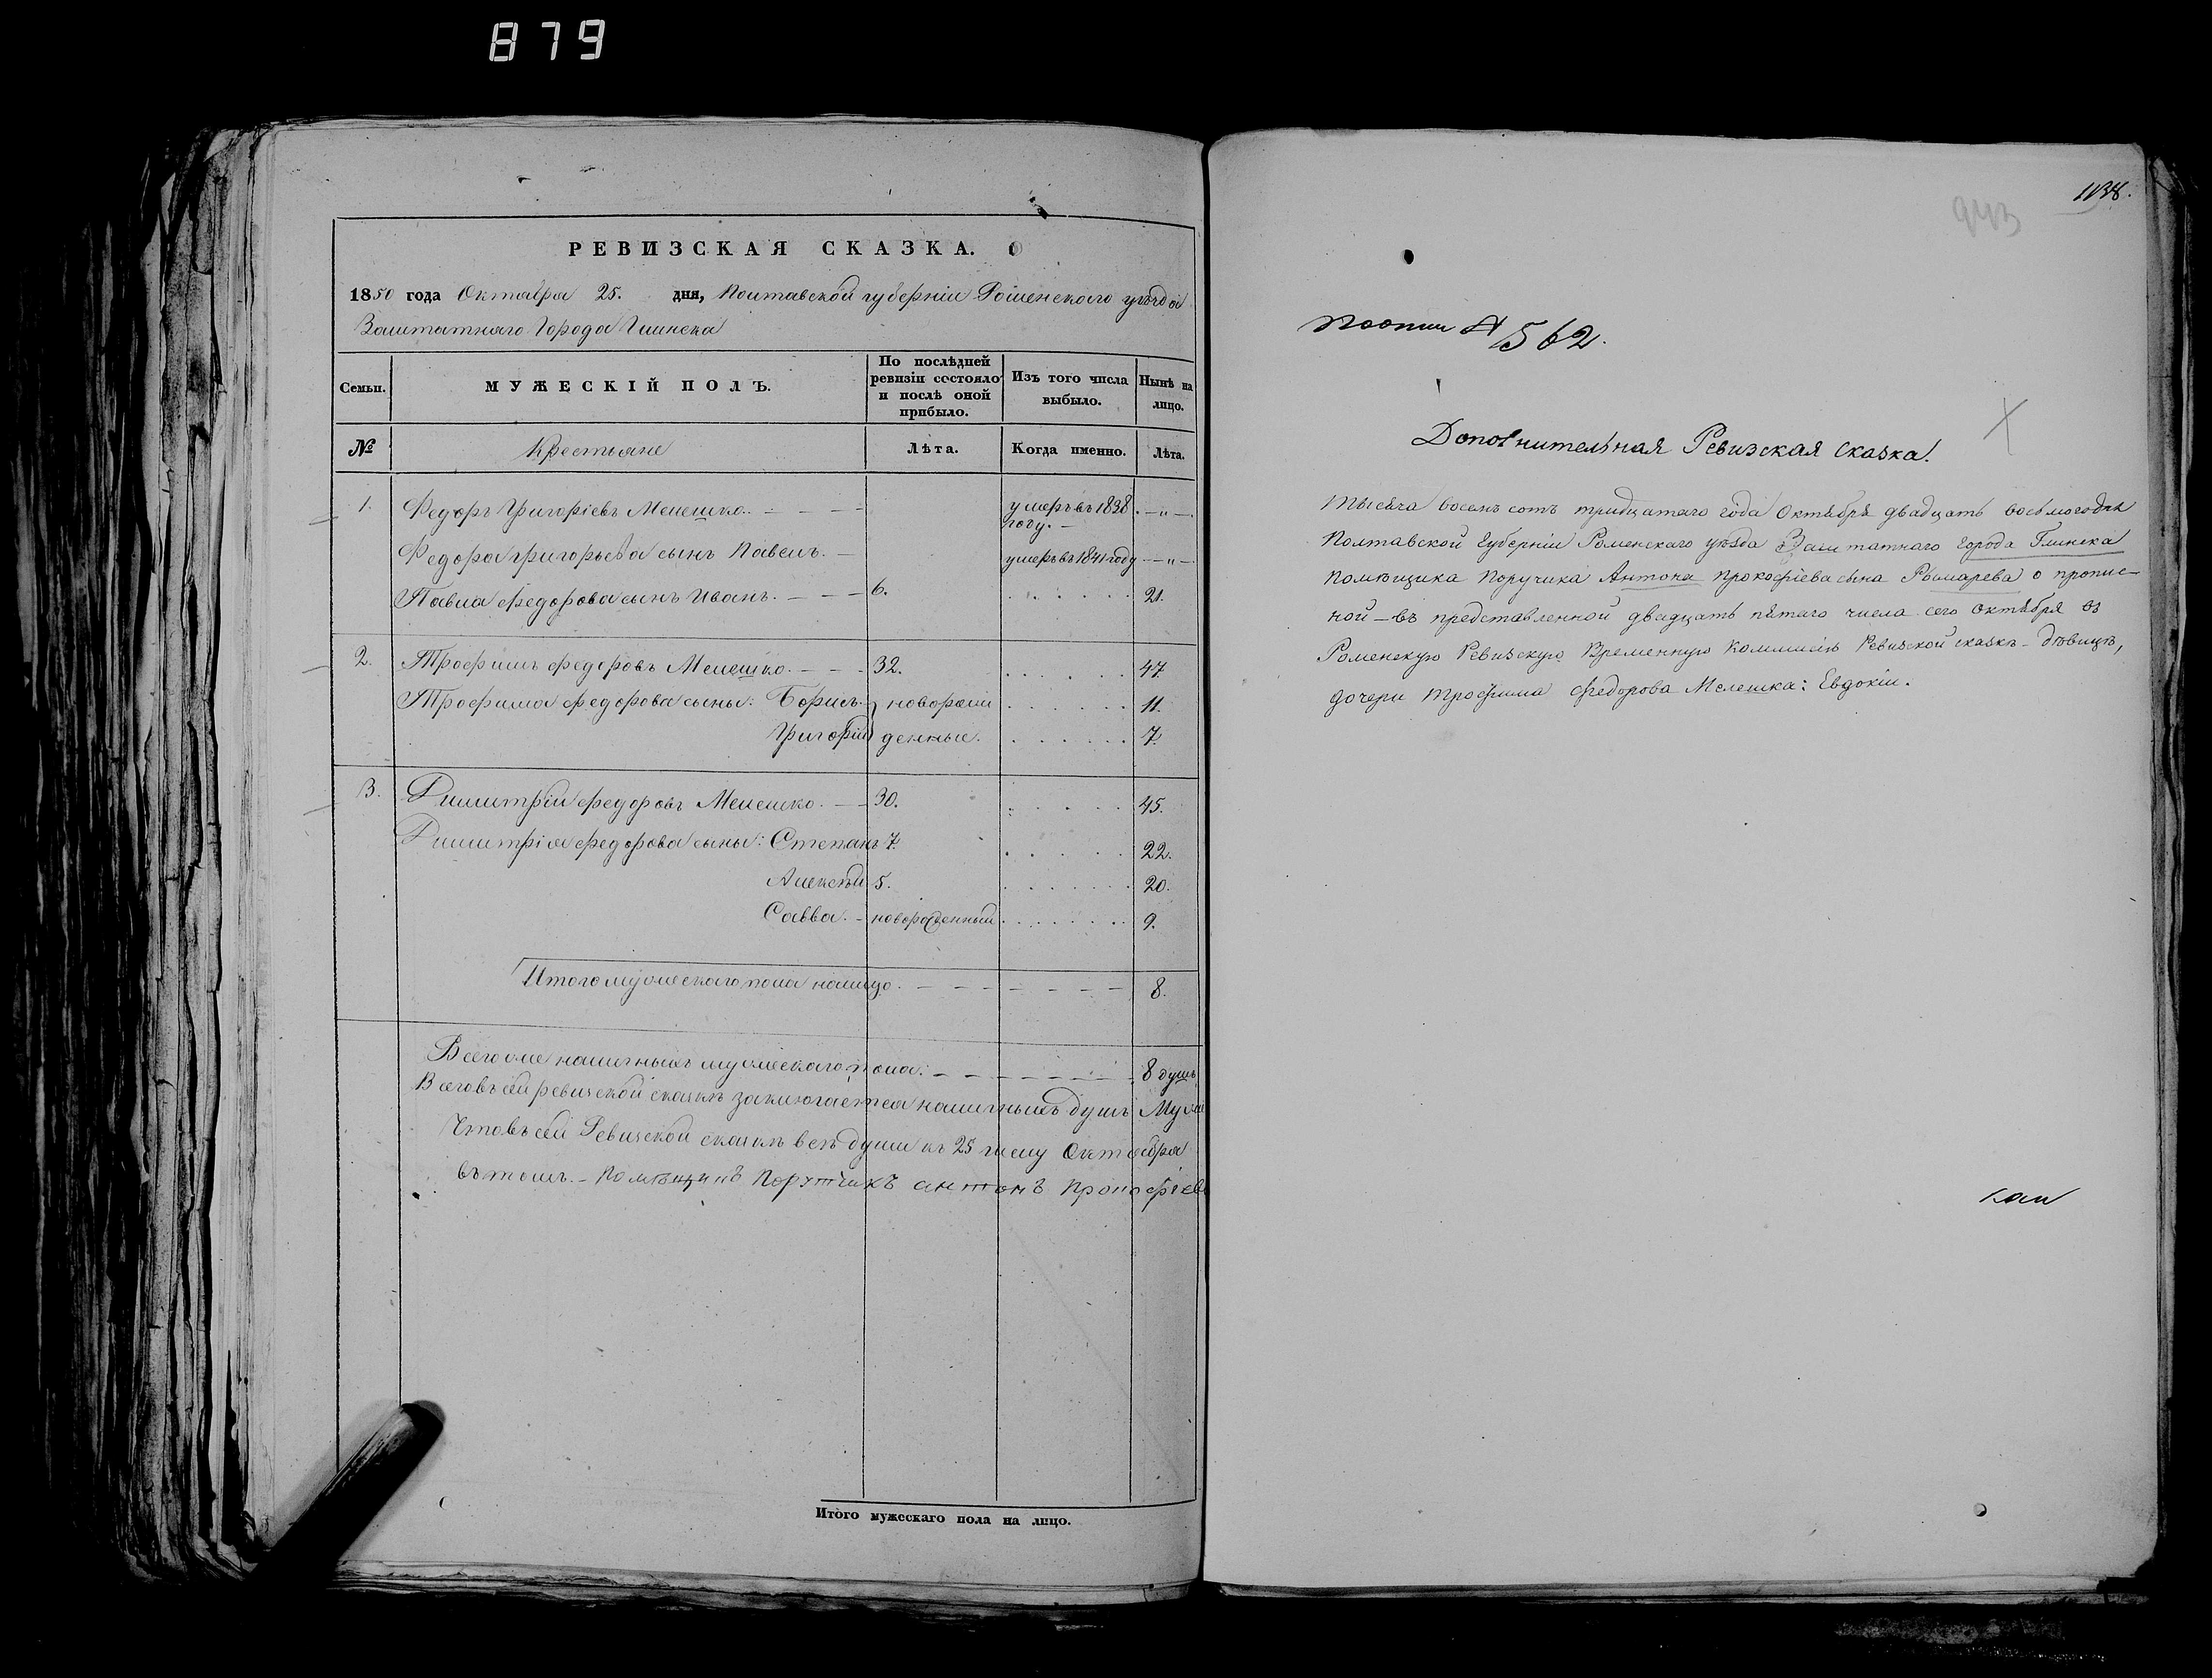 879
РЕВИЗСКАЯ СКАЗКА.
1850 года Октября 25. дня, Полтавской губерніи Роменского уѣзда
Заштатнаго Города Глинска
Семьи.
МУЖЕСКІЙ ПОЛЪ.
По послѣдней ревизіи состояло и послѣ оной прибыло.
Изъ того числа выбыло.
Нынѣ на лицо.
№ Крестьяне Лѣта. Когда именно. Лѣта.
1. Федоръ Григоріевъ Мелешко. умеръ въ 1838 году. — „ —
Федора Григорьева сынъ Павелъ. — умеръ въ 1841 году — „ —
Павла Федорова сынъ Иванъ. — 6. 21.
2. Трофимъ Федоровъ Мелешко. — 32. 47.
Трофима Федорова сыны: Борисъ новорож 11.
Григорій денные. 7.
3. Димитрій Федоровъ Мелешко. — 30. 45.
Димитрія Федорова сыны: Степанъ 7. 22.
Алексѣй 5. 20.
Савва. — новорожденный 9.
Итого мужескаго пола налицо. 8.
Всего же наличныхъ мужескаго пола: — 8 душъ
Всего въ сей ревизской сказкѣ заключается наличныхъ душъ Муже
Что въ сей Ревизской сказкѣ всѣ души къ 25 числу Октября
въ томъ. — Помѣщикъ Порутчикъ антонъ Прокофіев
Итого мужескаго пола на лицо.
1138.
943
562.
Дополнительная Ревизская сказка.
Тысяча восемь сотъ тридцатаго года Октября двадцать восьмого дня
Полтавской Губерніи Роменскаго уѣзда Заштатнаго города Глинска
помѣщика Поручика Антона Прокофіева сына о пропис-
ной — въ представленной двадцать пятаго числа сего Октября въ
Роменскую Ревизскую Временную Коммисію Ревизской сказкѣ — дѣвицѣ,
дочери Трофима Федорова Мелешка: Евдокіи.